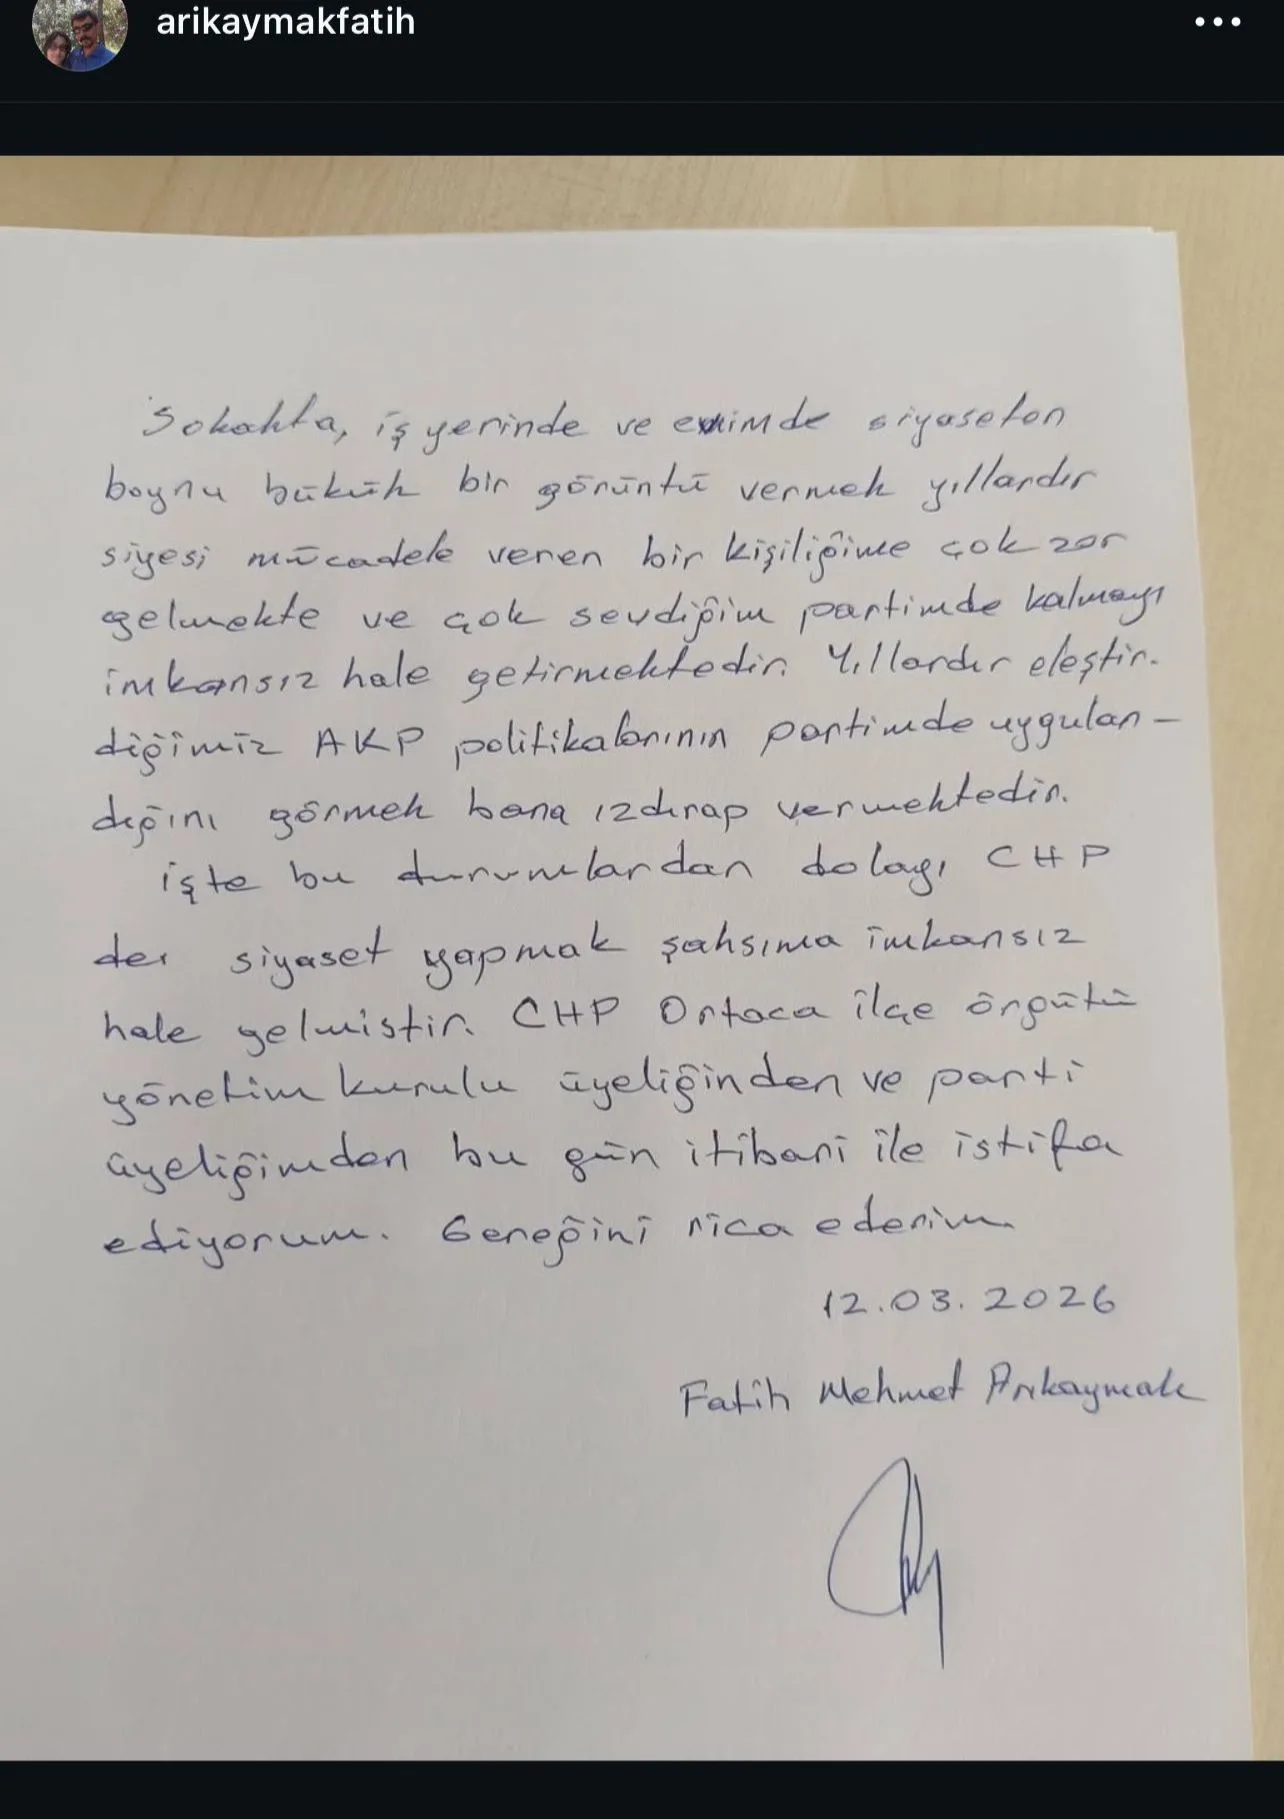 arikaymakfatih
Sokakta, iş yerinde ve evimde siyaseten
boynu bükük bir görüntü vermek yıllardır
siyesi mücadele veren bir kişiliğime çok zor
gelmekte ve çok sevdiğim partimde kalmayı
imkansız hale getirmektedir. Yıllardır eleştir-
diğimiz AKP politikalarının partimde uygulan-
dığını görmek bana ızdırap vermektedir.
işte bu durumlardan dolayı CHP
der siyaset yapmak şahsıma imkansız
hale gelmiştir. CHP Ortaca ilçe örgütü
yönetim kurulu üyeliğinden ve parti
üyeliğimden bu gün itibari ile istifa
ediyorum. Gereğini rica ederim.
12.03.2026
Fatih Mehmet Arıkaymak